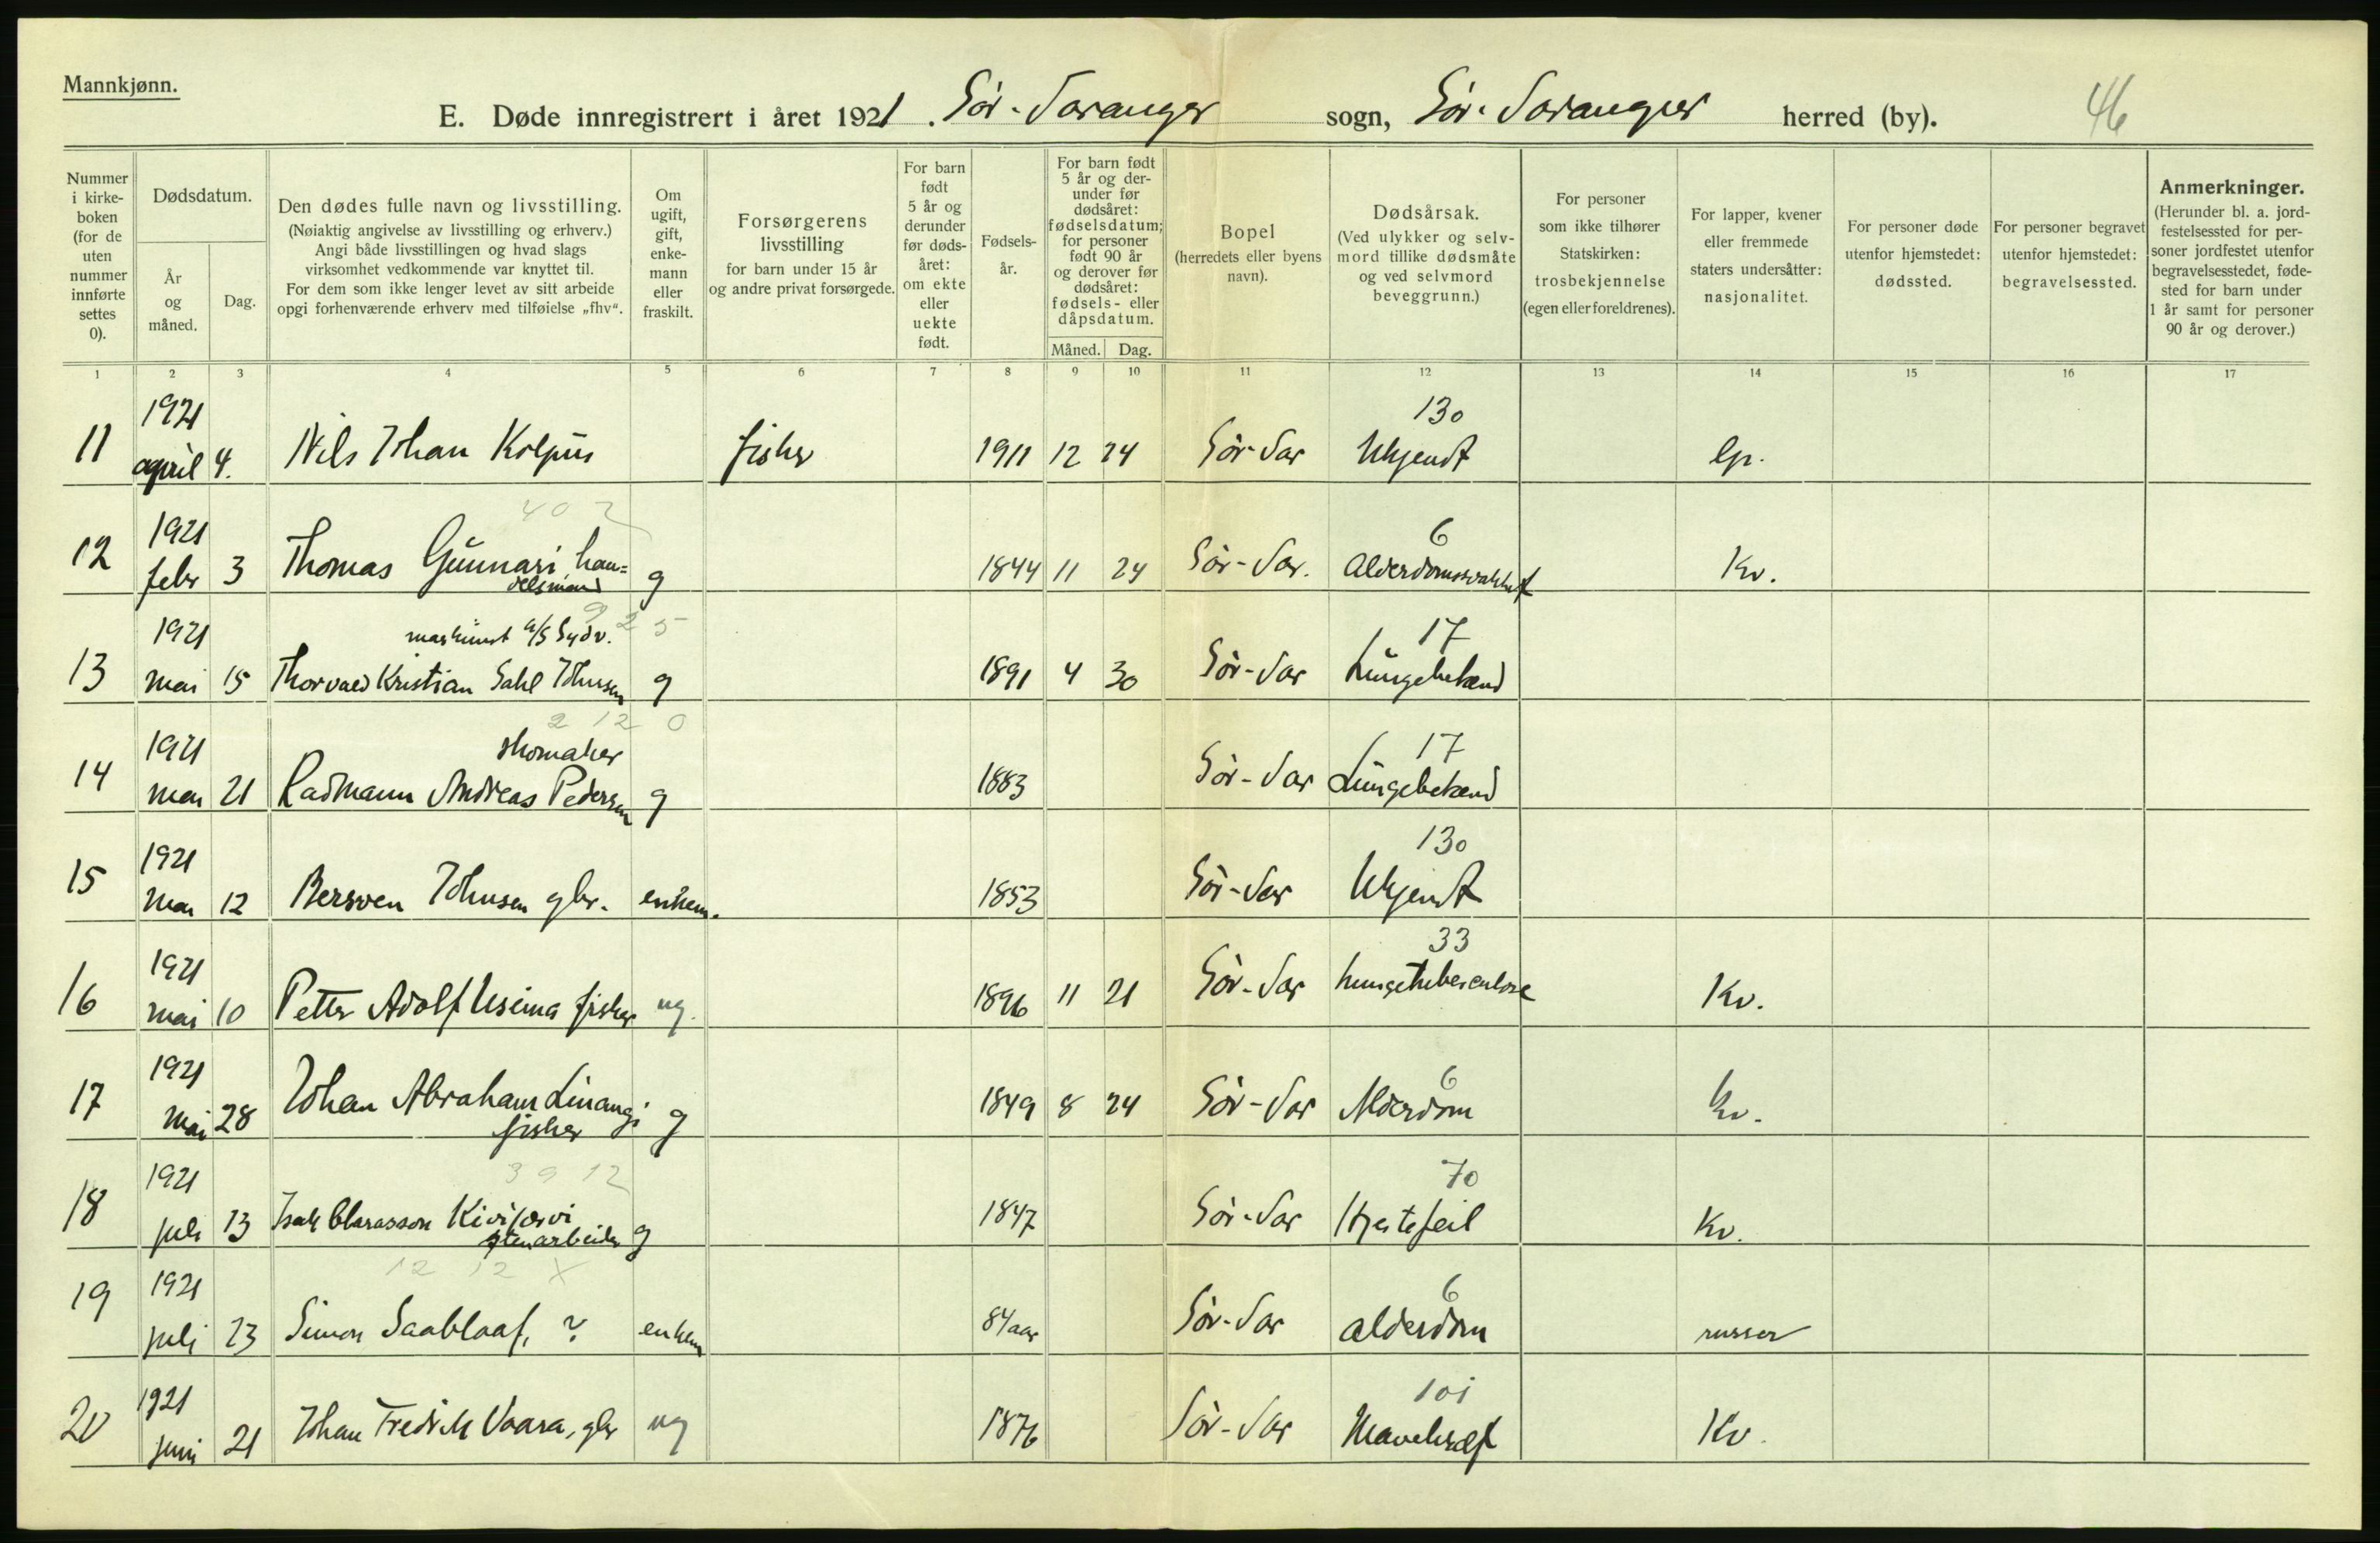 Mannkjønn.
E. Døde innregistrert i året 1921. Sør-Varanger sogn, Sør-Varanger herred (by). 46
Nummer i kirkeboken (for de uten nummer innførte settes 0).
Dødsdatum.
År og måned.
Dag.
Den dødes fulle navn og livsstilling.
(Nøiaktig angivelse av livsstilling og erhverv.)
Angi både livsstillingen og hvad slags
virksomhet vedkommende var knyttet til.
For dem som ikke lenger levet av sitt arbeide
opgi forhenværende erhverv med tilføielse „fhv“.
Om ugift, gift, enkemann eller fraskilt.
Forsørgerens livsstilling
for barn under 15 år
og andre privat forsørgede.
For barn født 5 år og derunder før dødsåret: om ekte eller uekte født.
Fødselsår.
For barn født 5 år og derunder før dødsåret: fødselsdatum; for personer født 90 år og derover før dødsåret: fødsels- eller dåpsdatum.
Måned. Dag.
Bopel
(herredets eller byens navn).
Dødsårsak.
(Ved ulykker og selvmord tillike dødsmåte og ved selvmord beveggrunn.)
For personer som ikke tilhører Statskirken: trosbekjennelse (egen eller foreldrenes).
For lapper, kvener eller fremmede staters undersåtter: nasjonalitet.
For personer døde utenfor hjemstedet: dødssted.
For personer begravet utenfor hjemstedet: begravelsessted.
Anmerkninger.
(Herunder bl. a. jordfestelsessted for personer jordfestet utenfor begravelsesstedet, fødested for barn under 1 år samt for personer 90 år og derover.)
1 2 3 4 5 6 7 8 9 10 11 12 13 14 15 16 17
1921 130
11 april 4. Nils Johan Kolpus fisker 1911 12 24 Sør-Var Ukjendt lp.
402
1921 6
12 febr 3 Thomas Gunnari han= g 1844 11 24 Sør-Var. Alderdomssvakhet Kv.
delsmand
925
1921 maskinist a/s Sydv. 17
13 mai 15 Thorvald Kristian Dahl Johnsen g 1891 4 30 Sør-Var Lungebetænd
2 12 0
1921 skomaker 17
14 mai 21 Radmann Andreas Pedersen g 1883 Sør-Var Lungebetænd
1921 130
15 mai 12 Bersven Johnsen gbr. enkem. 1853 Sør-Var Ukjendt
1921 33
16 mai 10 Petter Adolf Usima fisker ug. 1896 11 21 Sør-Var Lungetuberculose Kv.
1921 6
17 mai 28 Johan Abraham Linangi g 1849 8 24 Sør-Var Alderdom Kv.
fisker
3 9 12
1921 70
18 juli 13 Isak Clarasson Kivijærvi g 1847 Sør-Var Hjertefeil Kv.
stenarbeider
12 12 X
1921 6
19 juli 23 Simon Saablaaf, ? enkem 84 aar Sør-Var alderdom russer
1921 101
20 juni 21 Johan Fredrik Vaara, gbr ug 1876 Sør-Var Mavekræft Kv.